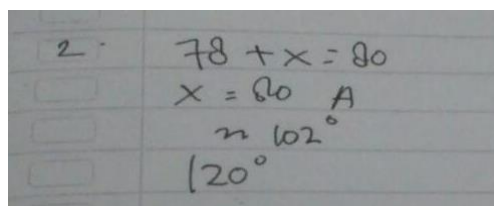 2. 78 + x = 80
x = 80 A
n 102°
120°